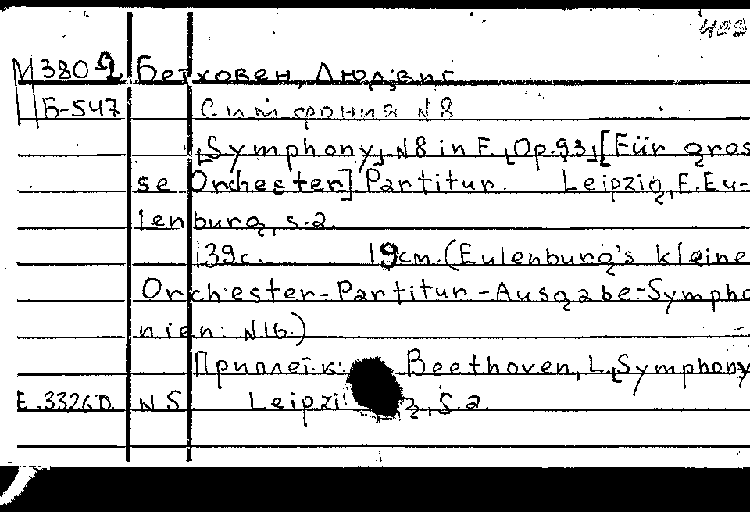 409
М380 Бетховен, Людвиг
Б-547 Симфония N8
[Symphony] N8 in F. [Op.93] [Für gros
se Orchester] Partitur. Leipzig, E. Eu-
lenburg, s.a.
139с. 19cm. (Eulenburg's kleine
Orchester-Partitur-Ausgabe-Sympho
nien: N16.)
Приплет. к: Beethoven, L. [Symphony
Е.3326D N5 Leipzig, S.a.